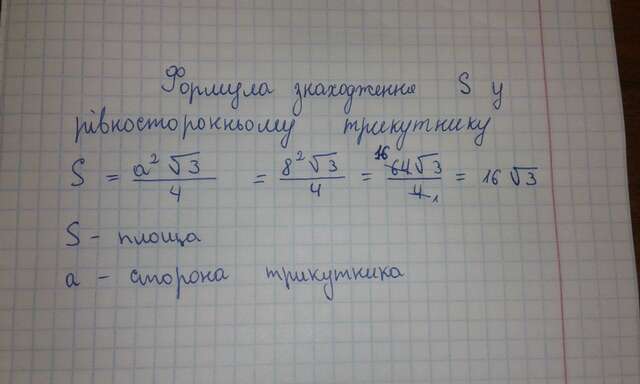 Формула знаходження S у
рівносторонньому трикутнику
S = a²√3/4 = 8²√3/4 = 16 64√3/4 1 = 16√3
S - площа
a - сторона трикутника